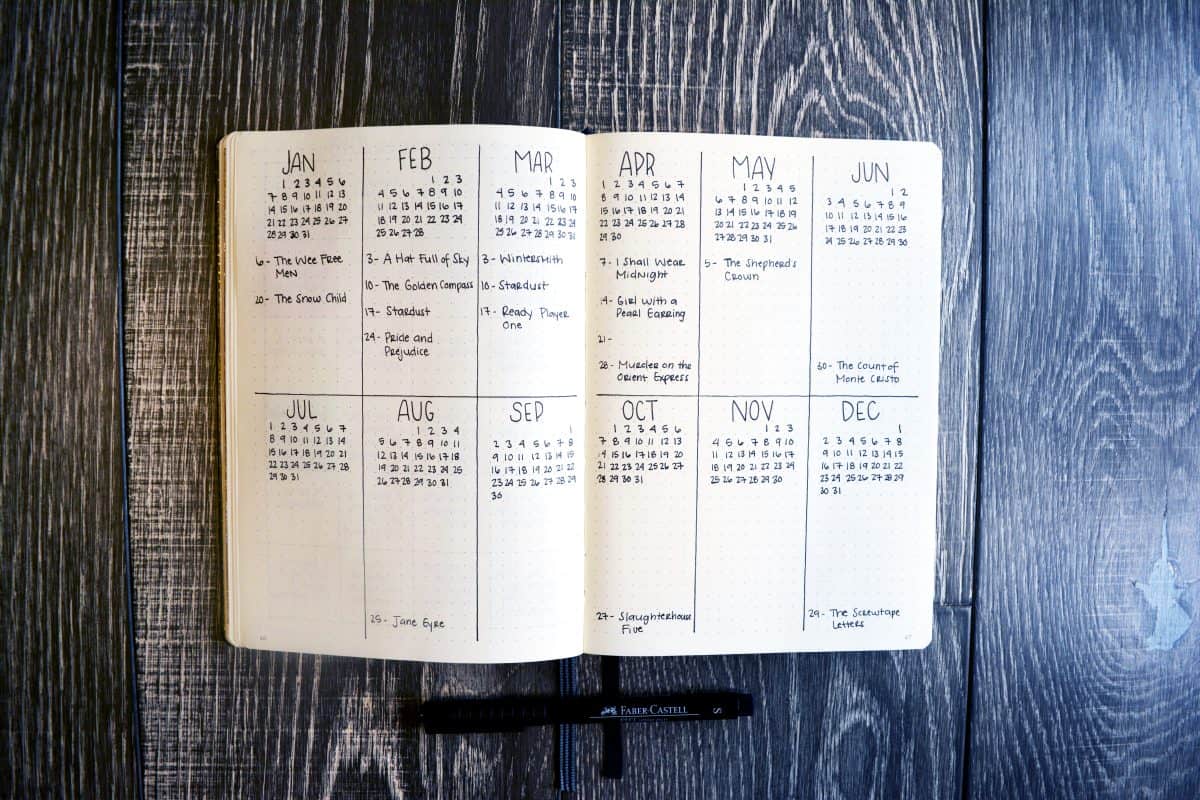 JAN
1 2 3 4 5 6
7 8 9 10 11 12 13
14 15 16 17 18 19 20
21 22 23 24 25 26 27
28 29 30 31
6- The Wee Free
Men
20- The Snow Child
FEB
1 2 3
4 5 6 7 8 9 10
11 12 13 14 15 16 17
18 19 20 21 22 23 24
25 26 27 28
3- A Hat Full of Sky
10- The Golden Compass
17- Stardust
24- Pride and
Prejudice
MAR
1 2 3
4 5 6 7 8 9 10
11 12 13 14 15 16 17
18 19 20 21 22 23 24
25 26 27 28 29 30 31
3- Wintersmith
10- Stardust
17- Ready Player
One
APR
1 2 3 4 5 6 7
8 9 10 11 12 13 14
15 16 17 18 19 20 21
22 23 24 25 26 27 28
29 30
7- I Shall Wear
Midnight
14- Girl with a
Pearl Earring
21-
28- Murder on the
Orient Express
MAY
1 2 3 4 5
6 7 8 9 10 11 12
13 14 15 16 17 18 19
20 21 22 23 24 25 26
27 28 29 30 31
5- The Shepherd's
Crown
JUN
1 2
3 4 5 6 7 8 9
10 11 12 13 14 15 16
17 18 19 20 21 22 23
24 25 26 27 28 29 30
30- The Count of
Monte Cristo
JUL
1 2 3 4 5 6 7
8 9 10 11 12 13 14
15 16 17 18 19 20 21
22 23 24 25 26 27 28
29 30 31
AUG
1 2 3 4
5 6 7 8 9 10 11
12 13 14 15 16 17 18
19 20 21 22 23 24 25
26 27 28 29 30 31
25- Jane Eyre
SEP
1
2 3 4 5 6 7 8
9 10 11 12 13 14 15
16 17 18 19 20 21 22
23 24 25 26 27 28 29
30
OCT
1 2 3 4 5 6
7 8 9 10 11 12 13
14 15 16 17 18 19 20
21 22 23 24 25 26 27
28 29 30 31
27- Slaughterhouse
Five
NOV
1 2 3
4 5 6 7 8 9 10
11 12 13 14 15 16 17
18 19 20 21 22 23 24
25 26 27 28 29 30
DEC
1
2 3 4 5 6 7 8
9 10 11 12 13 14 15
16 17 18 19 20 21 22
23 24 25 26 27 28 29
30 31
29- The Screwtape
Letters
FABER-CASTELL
S